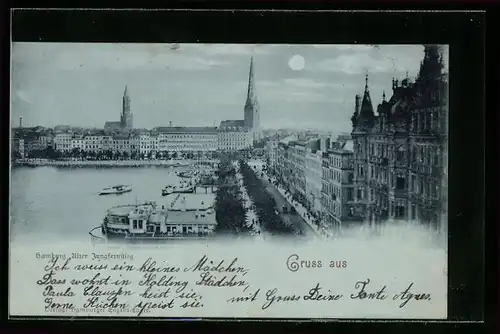 Hamburg Alter Jungfernstieg
Gruss aus
Ich weiss ein kleines Mädchen,
Das wohnt in Kolding Städchen,
Paula Clausken heist sie,
Gerne Kuchen speist sie.
mit Gruss Deine Tante Agnes.